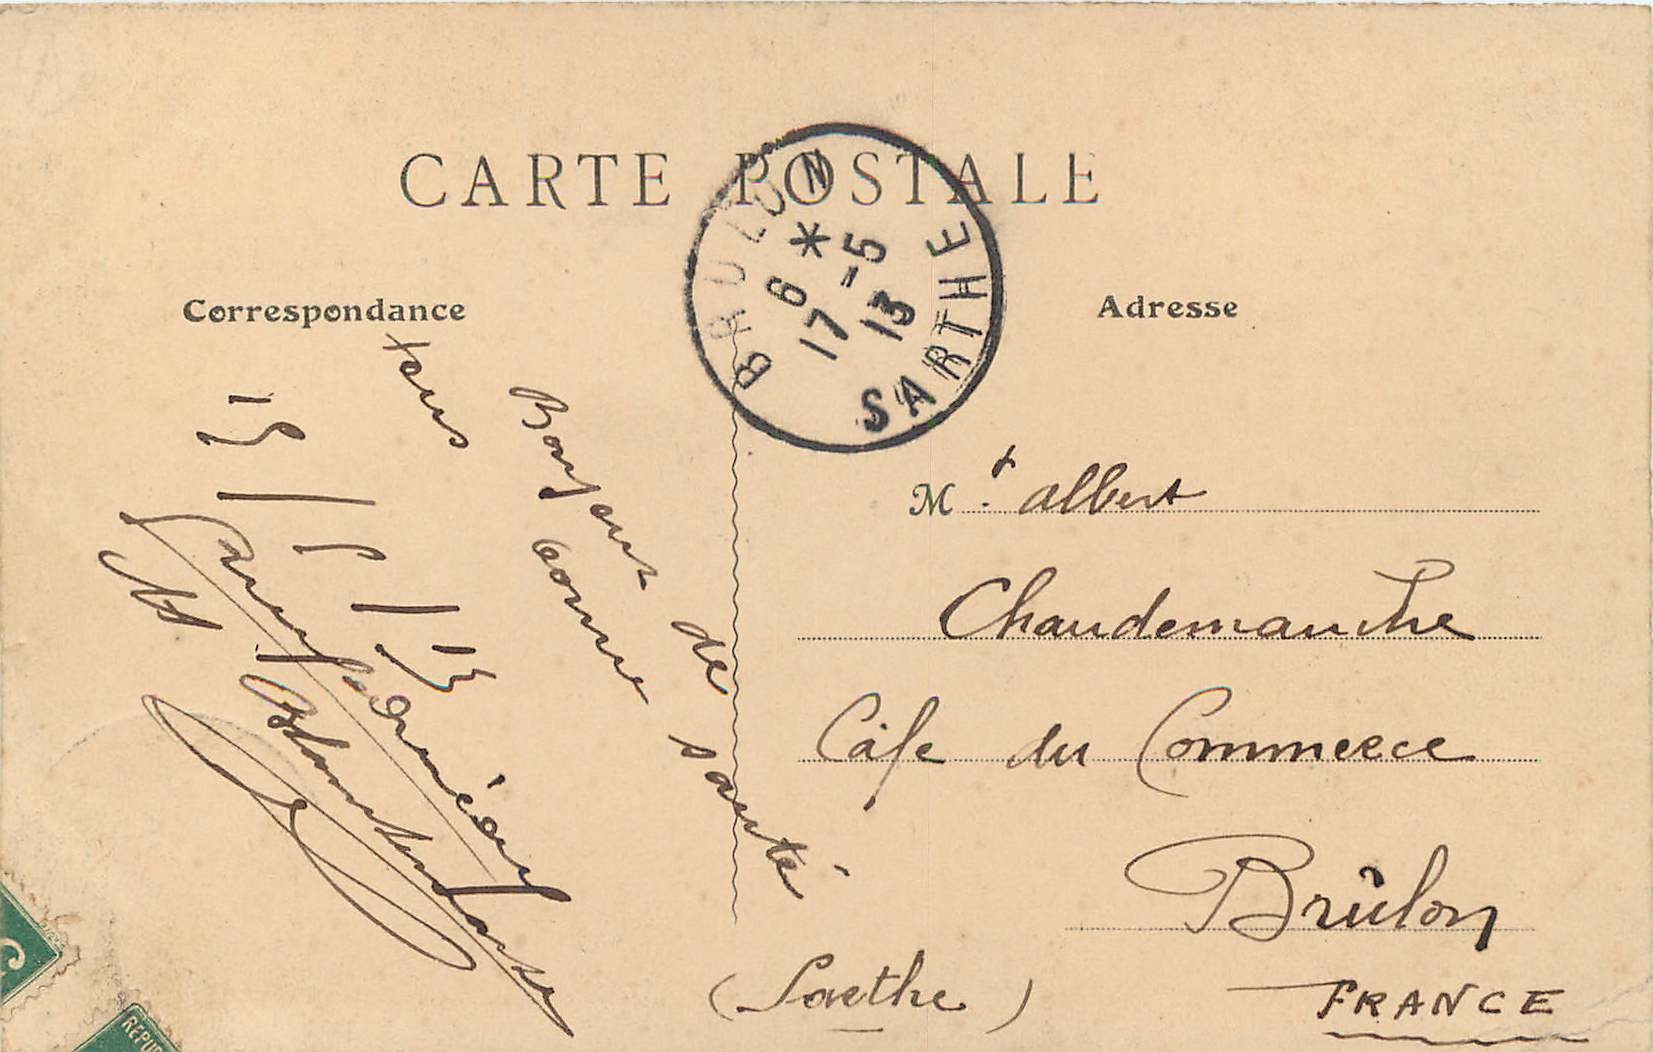 CARTE POSTALE
BRULON * SARTHE
6 *
17 -5
13
Correspondance
Adresse
Bonjour de
bonne santé
tous
15/5/13
M.r albert
Chaudemanche
Café du Commerce
Brûlon
(Sarthe)
FRANCE
REPUB